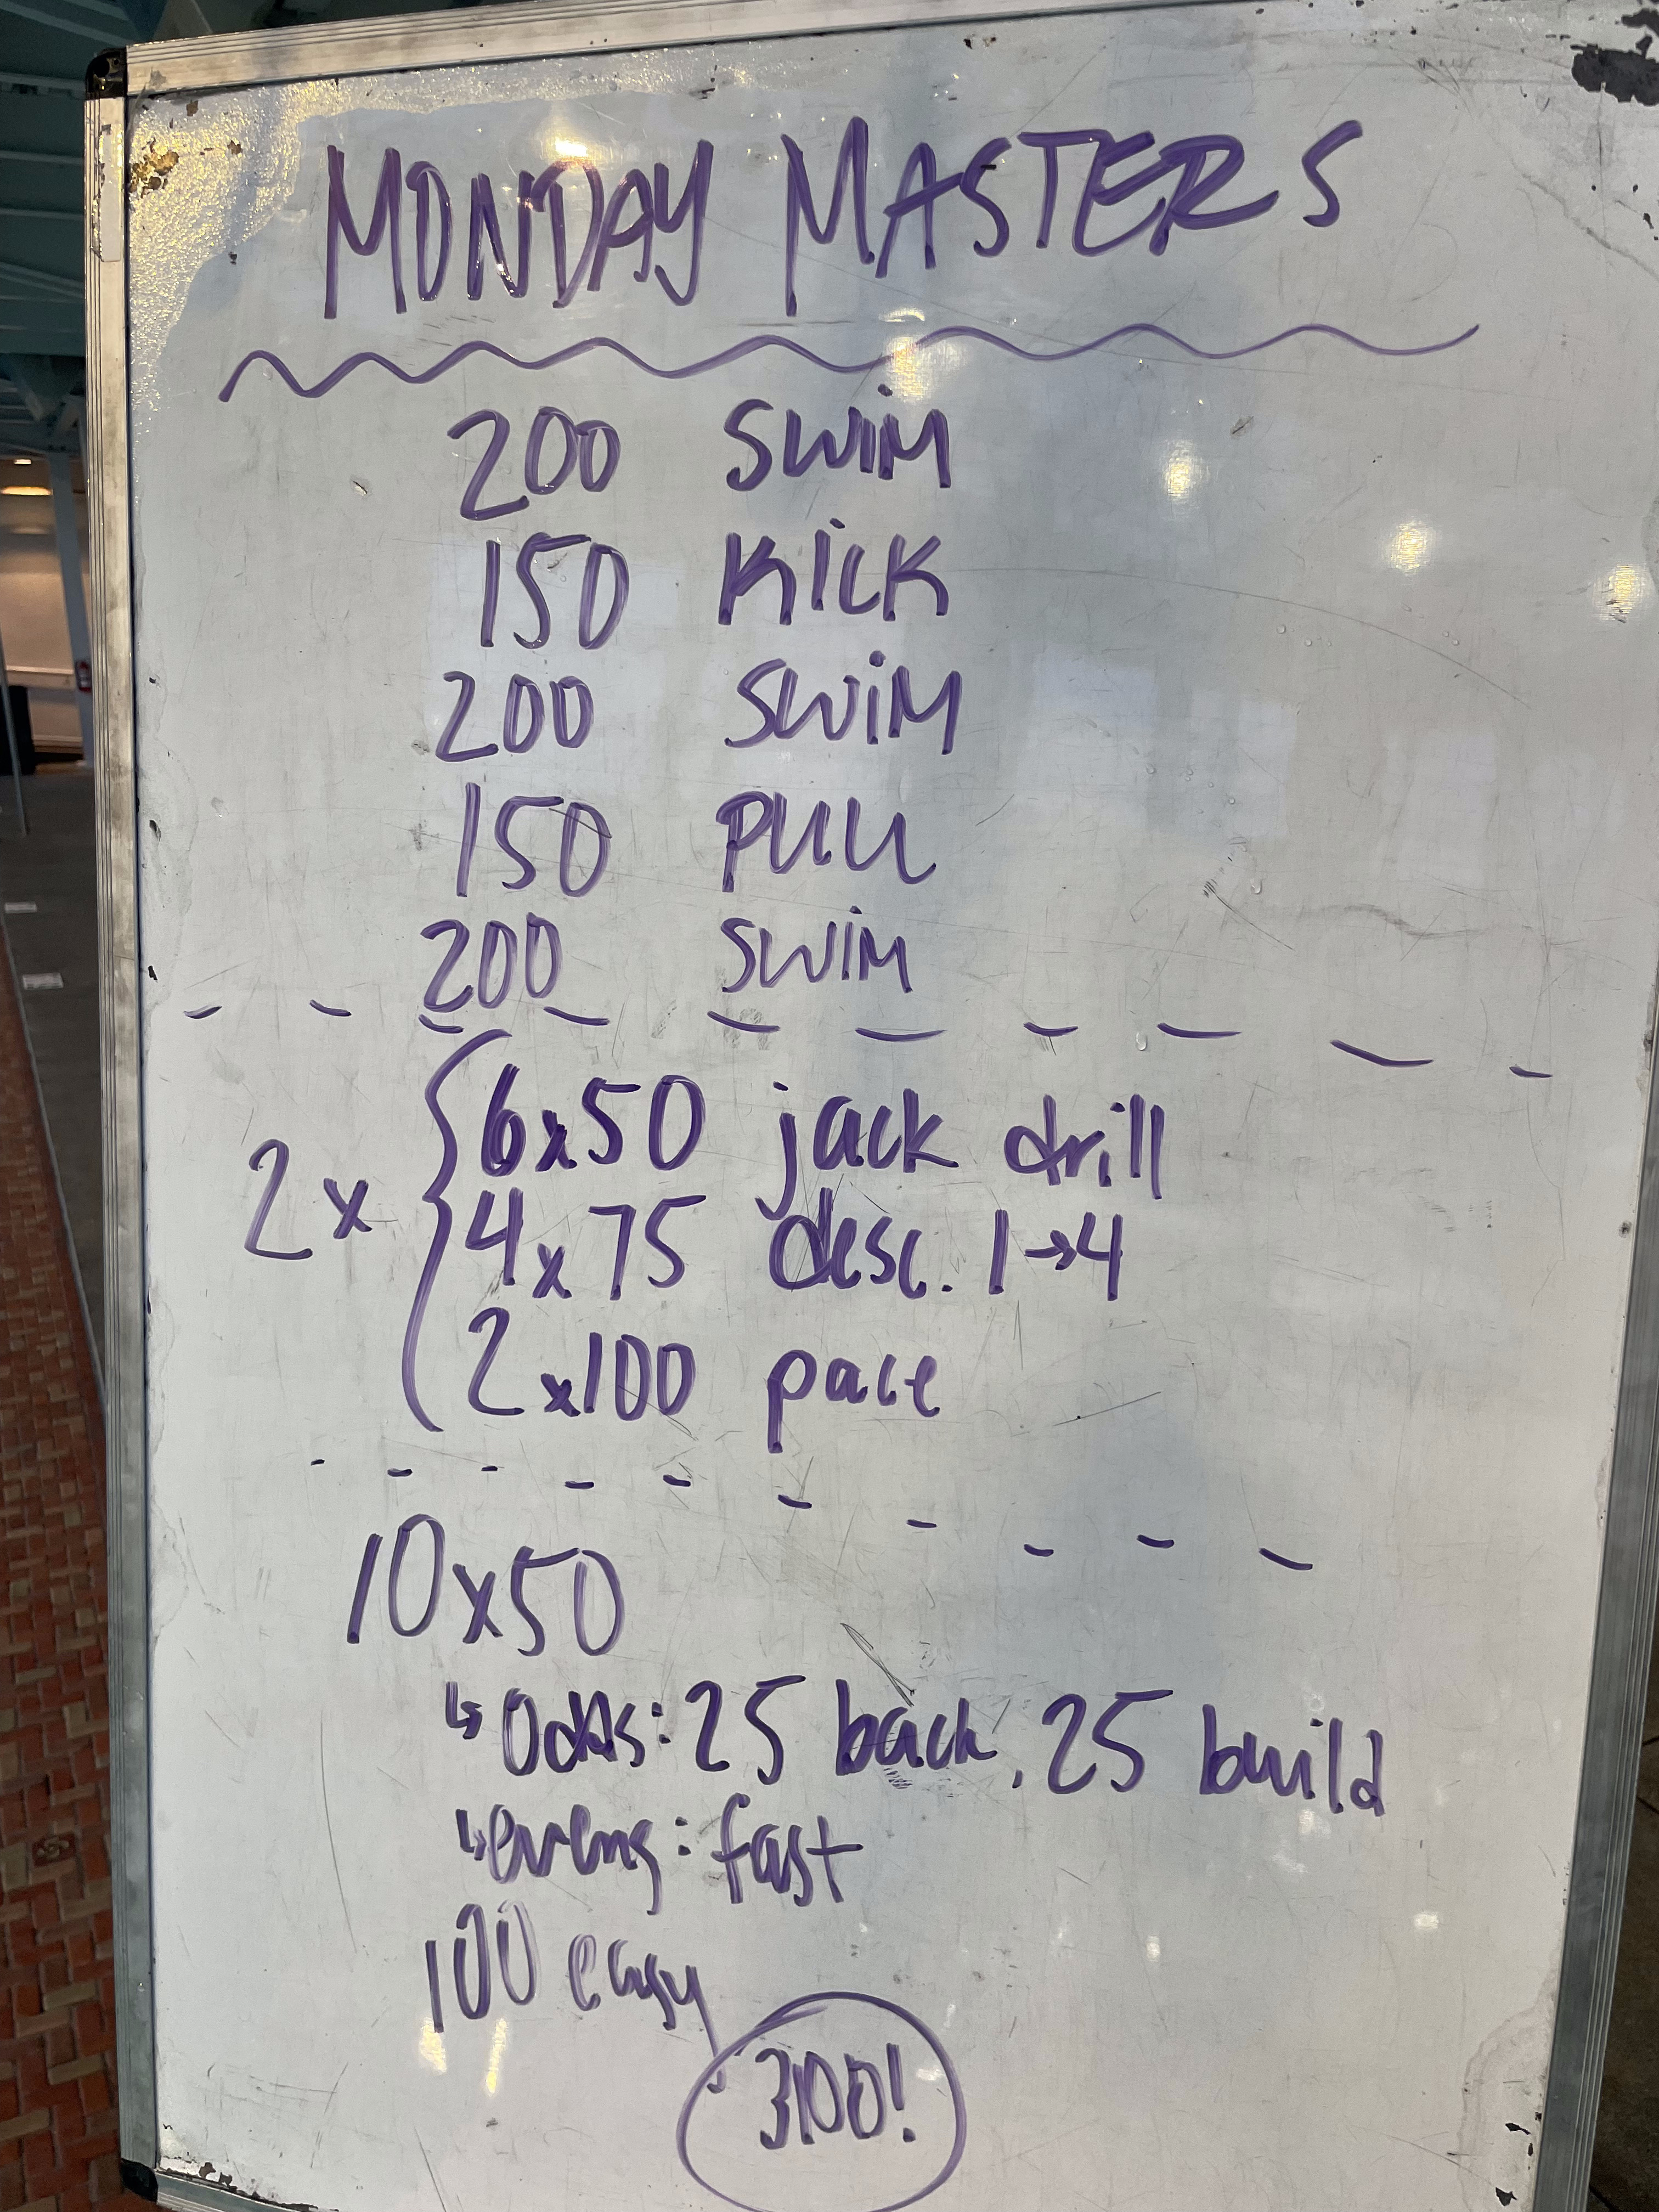 MONDAY MASTERS
200 SWIM
150 KICK
200 SWIM
150 PULL
200 SWIM
2x
6x50 jack drill
4x75 desc. 1→4
2x100 pace
10x50
↳ Odds: 25 back, 25 build
↳ evens: fast
100 easy
3100!